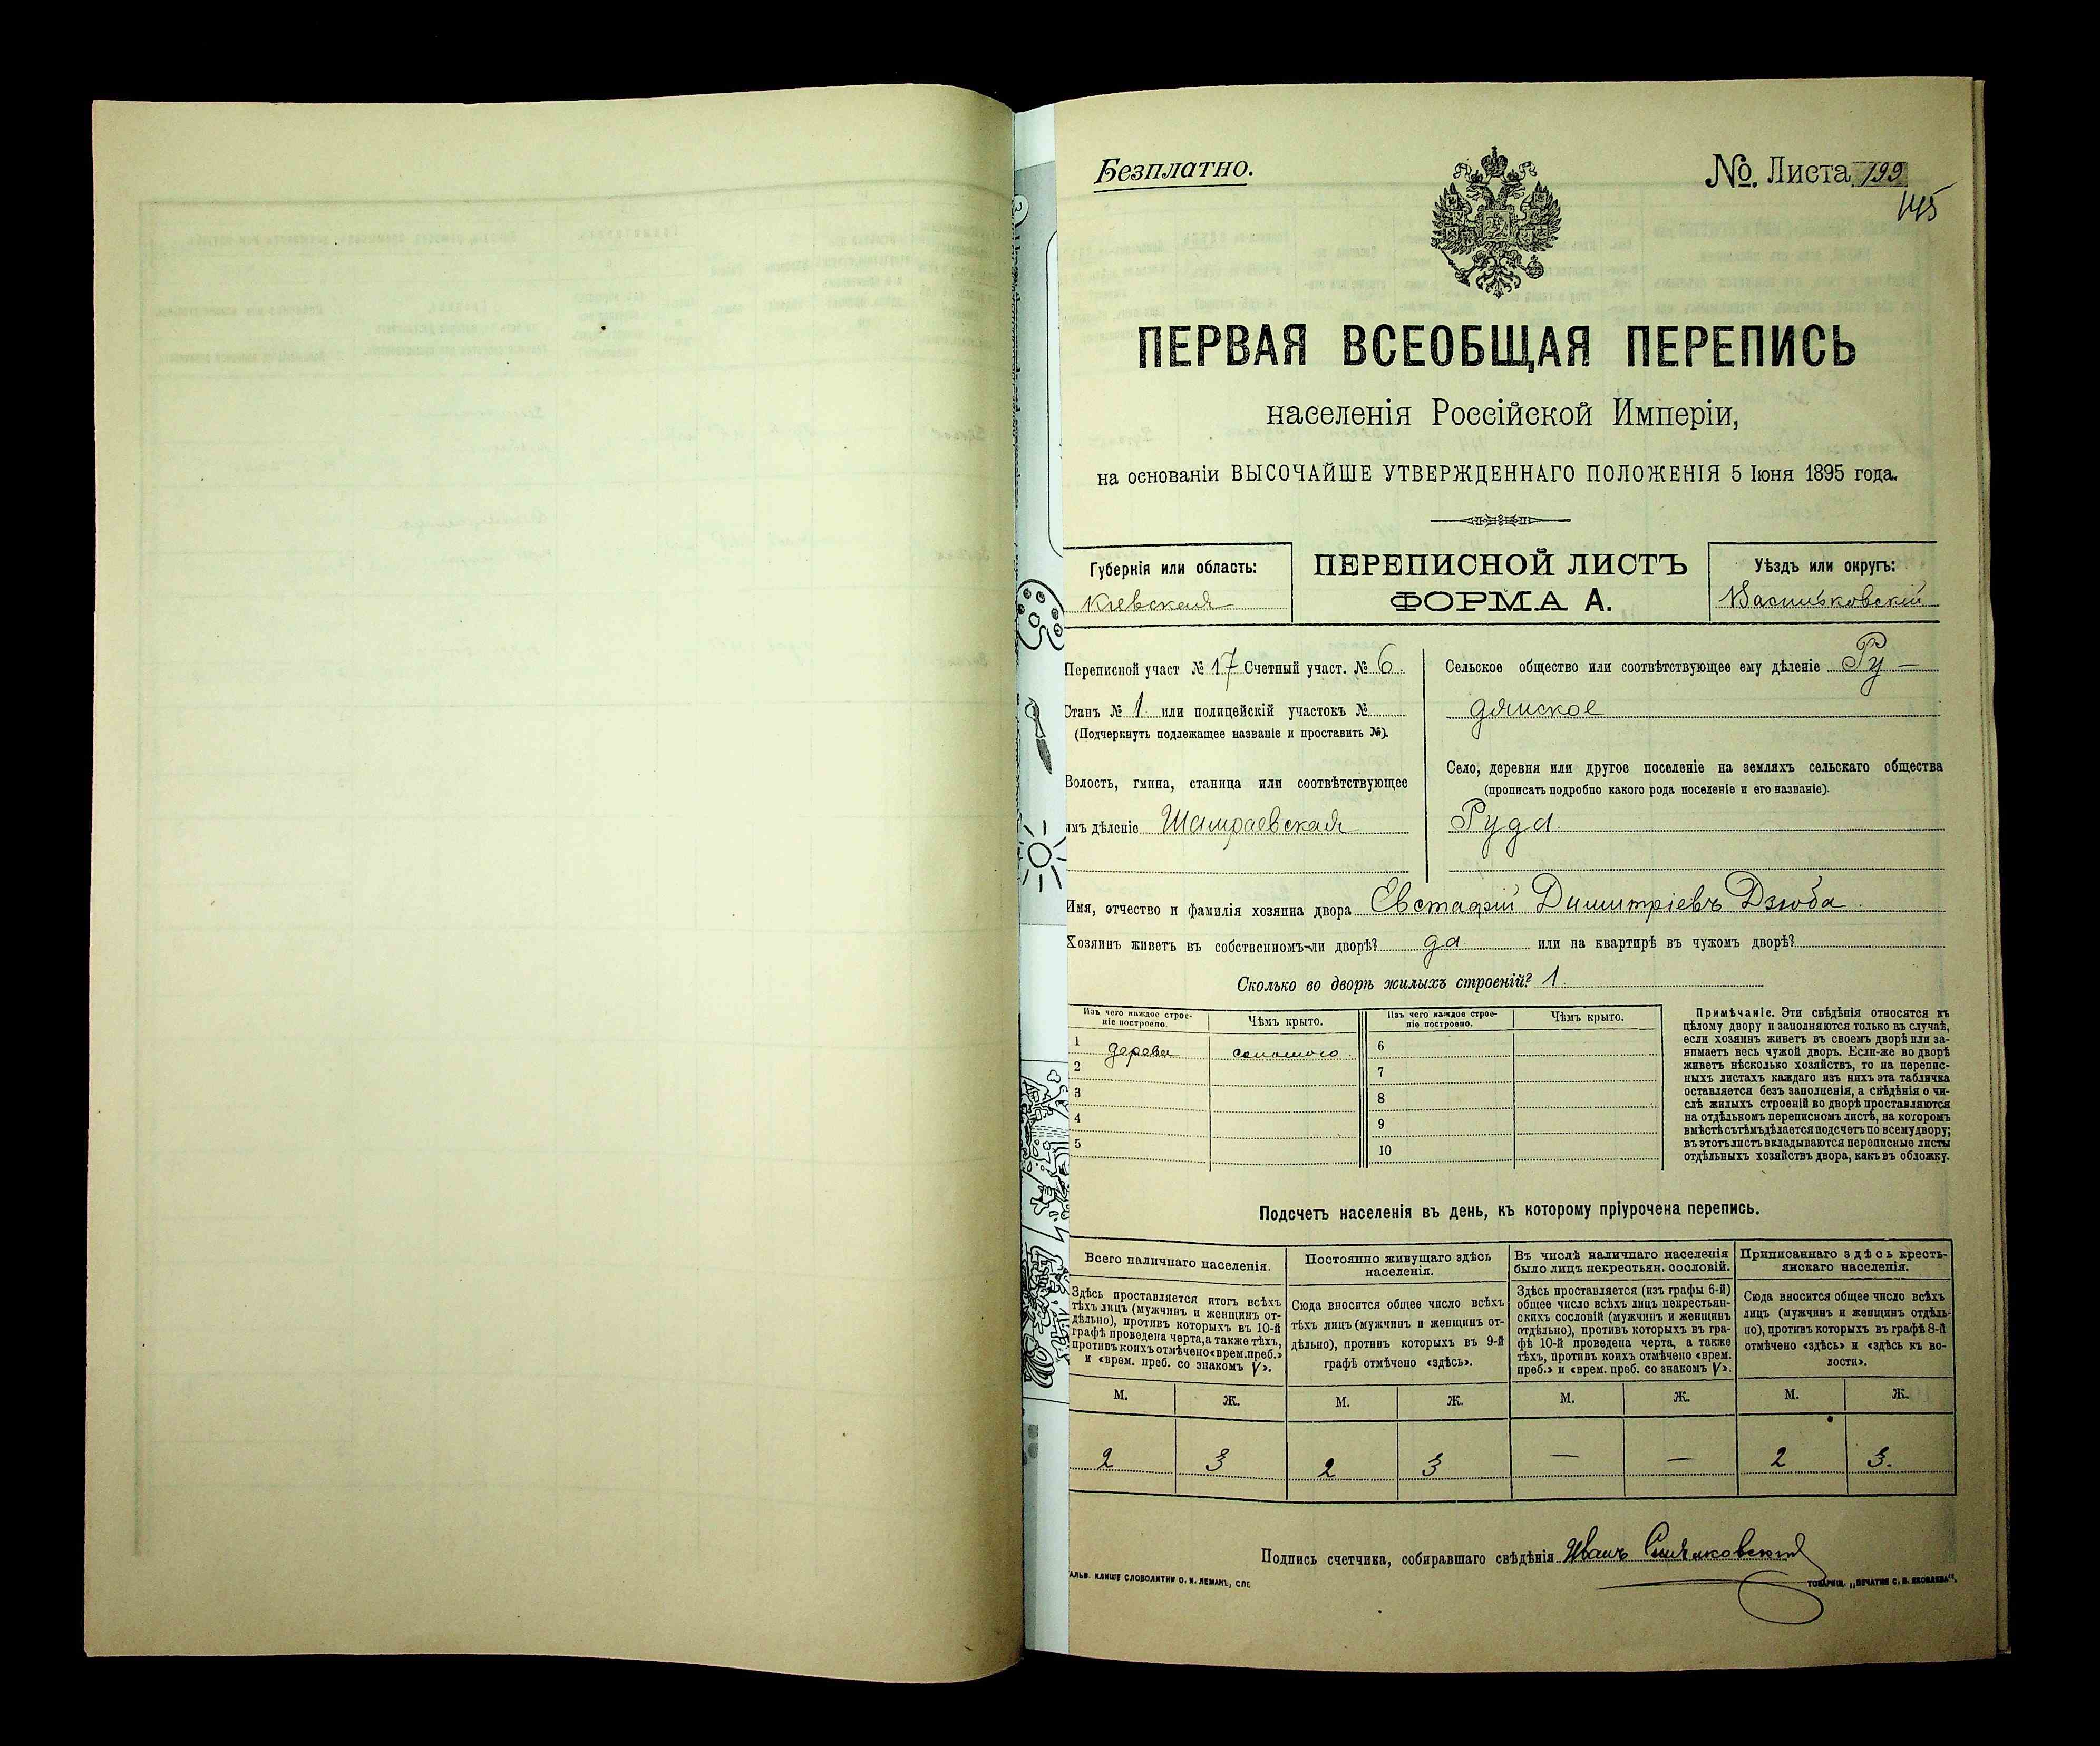 Безплатно.
№. Листа 199
145
ПЕРВАЯ ВСЕОБЩАЯ ПЕРЕПИСЬ
населенія Россійской Имперіи,
на основаніи ВЫСОЧАЙШЕ УТВЕРЖДЕННАГО ПОЛОЖЕНІЯ 5 Іюня 1895 года.
Губернія или область:
Кіевская
ПЕРЕПИСНОЙ ЛИСТЪ
ФОРМА А.
Уѣздъ или округъ:
Васильковскій
Переписной участ № 17 Счетный участ. № 6.
Станъ № 1 или полицейскій участокъ №
(Подчеркнуть подлежащее названіе и проставить №).
Волость, гмина, станица или соотвѣтствующее
имъ дѣленіе Шамраевская
Сельское общество или соотвѣтствующее ему дѣленіе Ру-
дянское
Село, деревня или другое поселеніе на земляхъ сельскаго общества
(прописать подробно какого рода поселеніе и его названіе).
Руда.
Имя, отчество и фамилія хозяина двора Евстафій Димитріевъ Дзюба.
Хозяинъ живетъ въ собственномъ-ли дворѣ? да или на квартирѣ въ чужомъ дворѣ?
Сколько во дворѣ жилыхъ строеній? 1.
Изъ чего каждое строе-
ніе построено.
Чѣмъ крыто.
Изъ чего каждое строе-
ніе построено.
Чѣмъ крыто.
1 дерева соломою 6
2 7
3 8
4 9
5 10
Примѣчаніе. Эти свѣдѣнія относятся къ
цѣлому двору и заполняются только въ случаѣ,
если хозяинъ живетъ въ своемъ дворѣ или за-
нимаетъ весь чужой дворъ. Если-же во дворѣ
живетъ нѣсколько хозяйствъ, то на перепис-
ныхъ листахъ каждаго изъ нихъ эта табличка
оставляется безъ заполненія, а свѣдѣнія о чи-
слѣ жилыхъ строеній во дворѣ проставляются
на отдѣльномъ переписномъ листѣ, на которомъ
вмѣстѣ съ тѣмъ дѣлается подсчетъ по всему двору;
въ этотъ листъ вкладываются переписные листы
отдѣльныхъ хозяйствъ двора, какъ въ обложку.
Подсчетъ населенія въ день, къ которому пріурочена перепись.
Всего наличнаго населенія.
Здѣсь проставляется итогъ всѣхъ
тѣхъ лицъ (мужчинъ и женщинъ от-
дѣльно), противъ которыхъ въ 10-й
графѣ проведена черта, а также тѣхъ,
противъ коихъ отмѣчено «врем. преб.»
и «врем. преб. со знакомъ V».
Постоянно живущаго здѣсь
населенія.
Сюда вносится общее число всѣхъ
тѣхъ лицъ (мужчинъ и женщинъ от-
дѣльно), противъ которыхъ въ 9-й
графѣ отмѣчено «здѣсь».
Въ числѣ наличнаго населенія
было лицъ некрестьян. сословій.
Здѣсь проставляется (изъ графы 6-й)
общее число всѣхъ лицъ некрестьян-
скихъ сословій (мужчинъ и женщинъ
отдѣльно), противъ которыхъ въ гра-
фѣ 10-й проведена черта, а также
тѣхъ, противъ коихъ отмѣчено «врем.
преб.» и «врем. преб. со знакомъ V».
Приписаннаго здѣсь кресть-
янскаго населенія.
Сюда вносится общее число всѣхъ
лицъ (мужчинъ и женщинъ отдѣль-
но), противъ которыхъ въ графѣ 8-й
отмѣчено «здѣсь» и «здѣсь къ во-
лости».
М. Ж. М. Ж. М. Ж. М. Ж.
2 3 2 3 — — 2 3.
Подпись счетчика, собиравшаго свѣдѣнія Иванъ
АЛЬВ. КЛИШЕ СЛОВОЛИТНИ О. И. ЛЕМАНЪ, СПБ
ТОВАРИЩ. „ПЕЧАТНЯ С. П. ЯКОВЛЕВА".